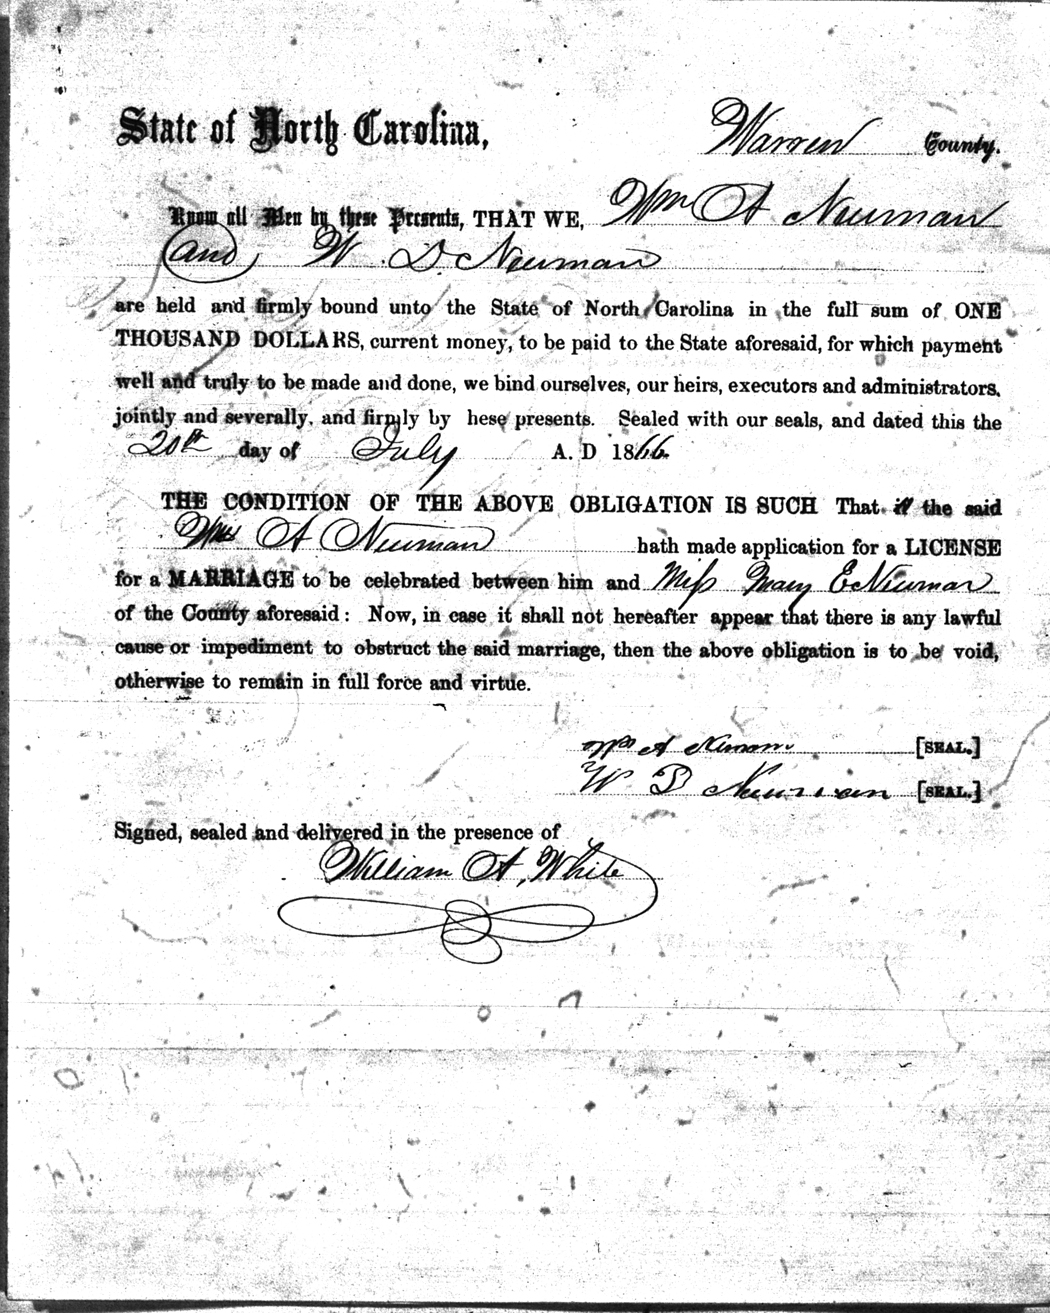 State of North Carolina, Warren County.
Know all Men by these Presents, THAT WE, Wm A Neuman
and W. D. Neuman
are held and firmly bound unto the State of North Carolina in the full sum of ONE
THOUSAND DOLLARS, current money, to be paid to the State aforesaid, for which payment
well and truly to be made and done, we bind ourselves, our heirs, executors and administrators,
jointly and severally, and firmly by hese presents. Sealed with our seals, and dated this the
20th day of July A. D 1866.
THE CONDITION OF THE ABOVE OBLIGATION IS SUCH That if the said
Wm A Neuman hath made application for a LICENSE
for a MARRIAGE to be celebrated between him and Miss Mary E Neuman
of the County aforesaid: Now, in case it shall not hereafter appear that there is any lawful
cause or impediment to obstruct the said marriage, then the above obligation is to be void,
otherwise to remain in full force and virtue.
Wm A Neuman [SEAL.]
W D Neuman [SEAL.]
Signed, sealed and delivered in the presence of
William A, White